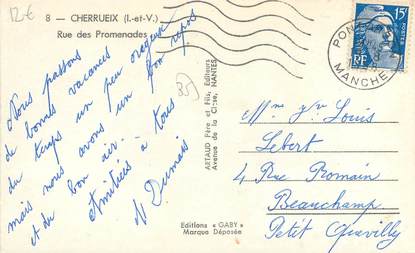 12€
8 - CHERRUEIX (I.-et-V.)
Rue des Promenades
Nous passons
de bonnes vacances
du temps un peu orageux
mais nous avons un bon repos
et du bon air.
Amitiés à tous
N Dumais
35
ARTAUD Père et Fils, Editeurs
Avenue de la Close, NANTES
Editions « GABY »
Marque Déposée
15F
RF
MANCHE
Mme Yve Louis
Lebert
4 Rue Romain
Beauchamp
Petit Quevilly